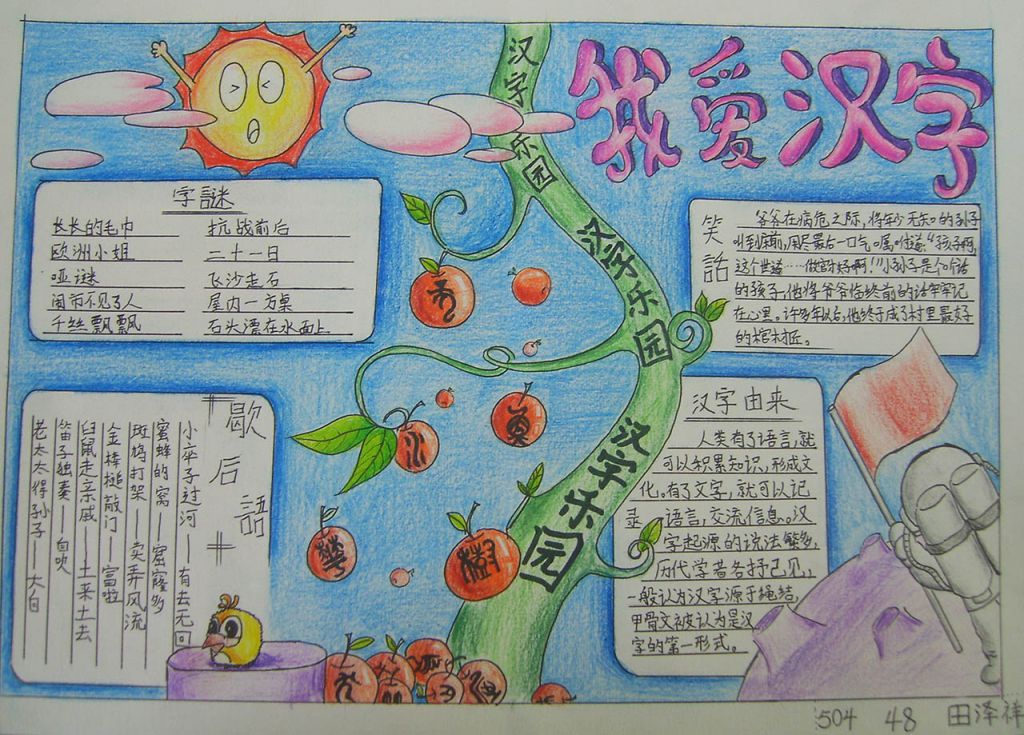 我爱汉字
汉字乐园
汉字乐园
汉字乐园
字謎
长长的毛巾 抗战前后
欧洲小姐 二十一日
哑谜 飞沙走石
闹市不见了人 屋内一方桌
千丝飘飘 石头漂在水面上
笑話
爷爷在病危之际,将年少无知的孙子
叫到床前,用尽最后一口气嘱咐道:“孩子啊,
这个世道……做官才好啊!”小孙子是个听话
的孩子,他将爷爷临终前的话牢牢记
在心里。许多年以后,他终于成了村里最好
的棺材匠。
歇后語
小卒子过河——有去无回
蜜蜂的窝——窟窿多
斑鸠打架——卖弄风流
金棒槌敲门——富啦
鼠走亲戚——土来土去
笛子独奏——自吹
老太太得孙子——大白
汉字由来
人类有了语言,就
可以积累知识,形成文
化。有了文字,就可以记
录语言,交流信息。汉
字起源的说法繁多,
历代学者各抒己见,
一般认为汉字源于绳结,
甲骨文被认为是汉
字的第一形式。
樹
504 48 田泽祥